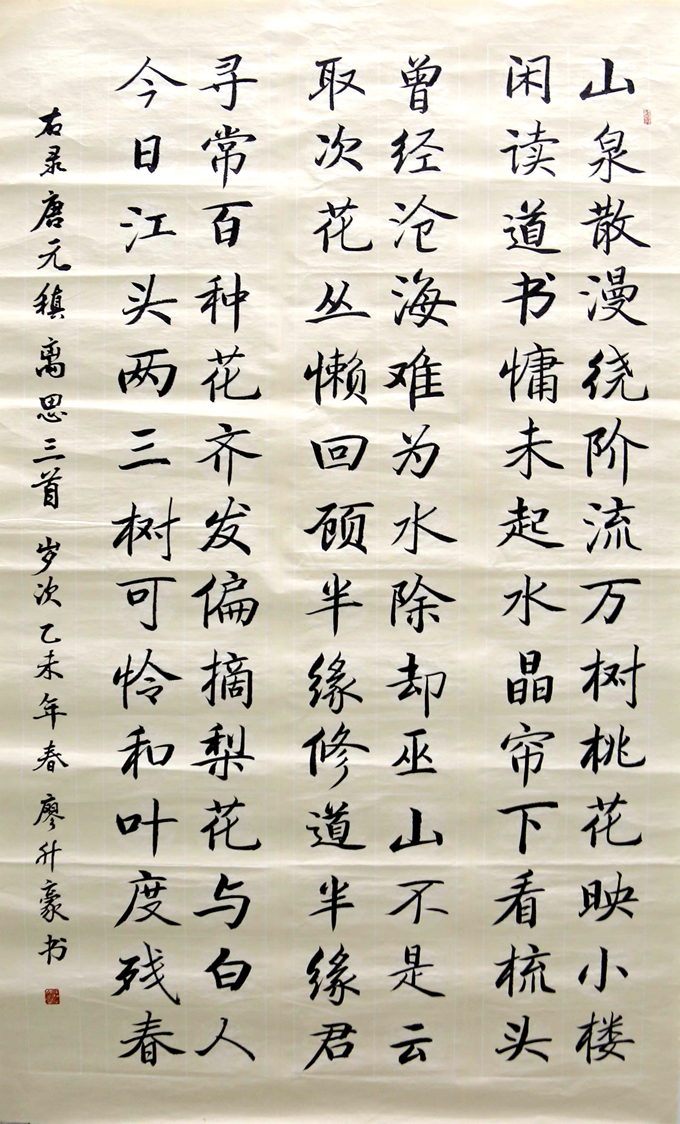 山泉散漫绕阶流万树桃花映小楼
闲读道书慵未起水晶帘下看梳头
曾经沧海难为水除却巫山不是云
取次花丛懒回顾半缘修道半缘君
寻常百种花齐发偏摘梨花与白人
今日江头两三树可怜和叶度残春
右录唐元稹离思三首 岁次乙未年春 廖升豪书